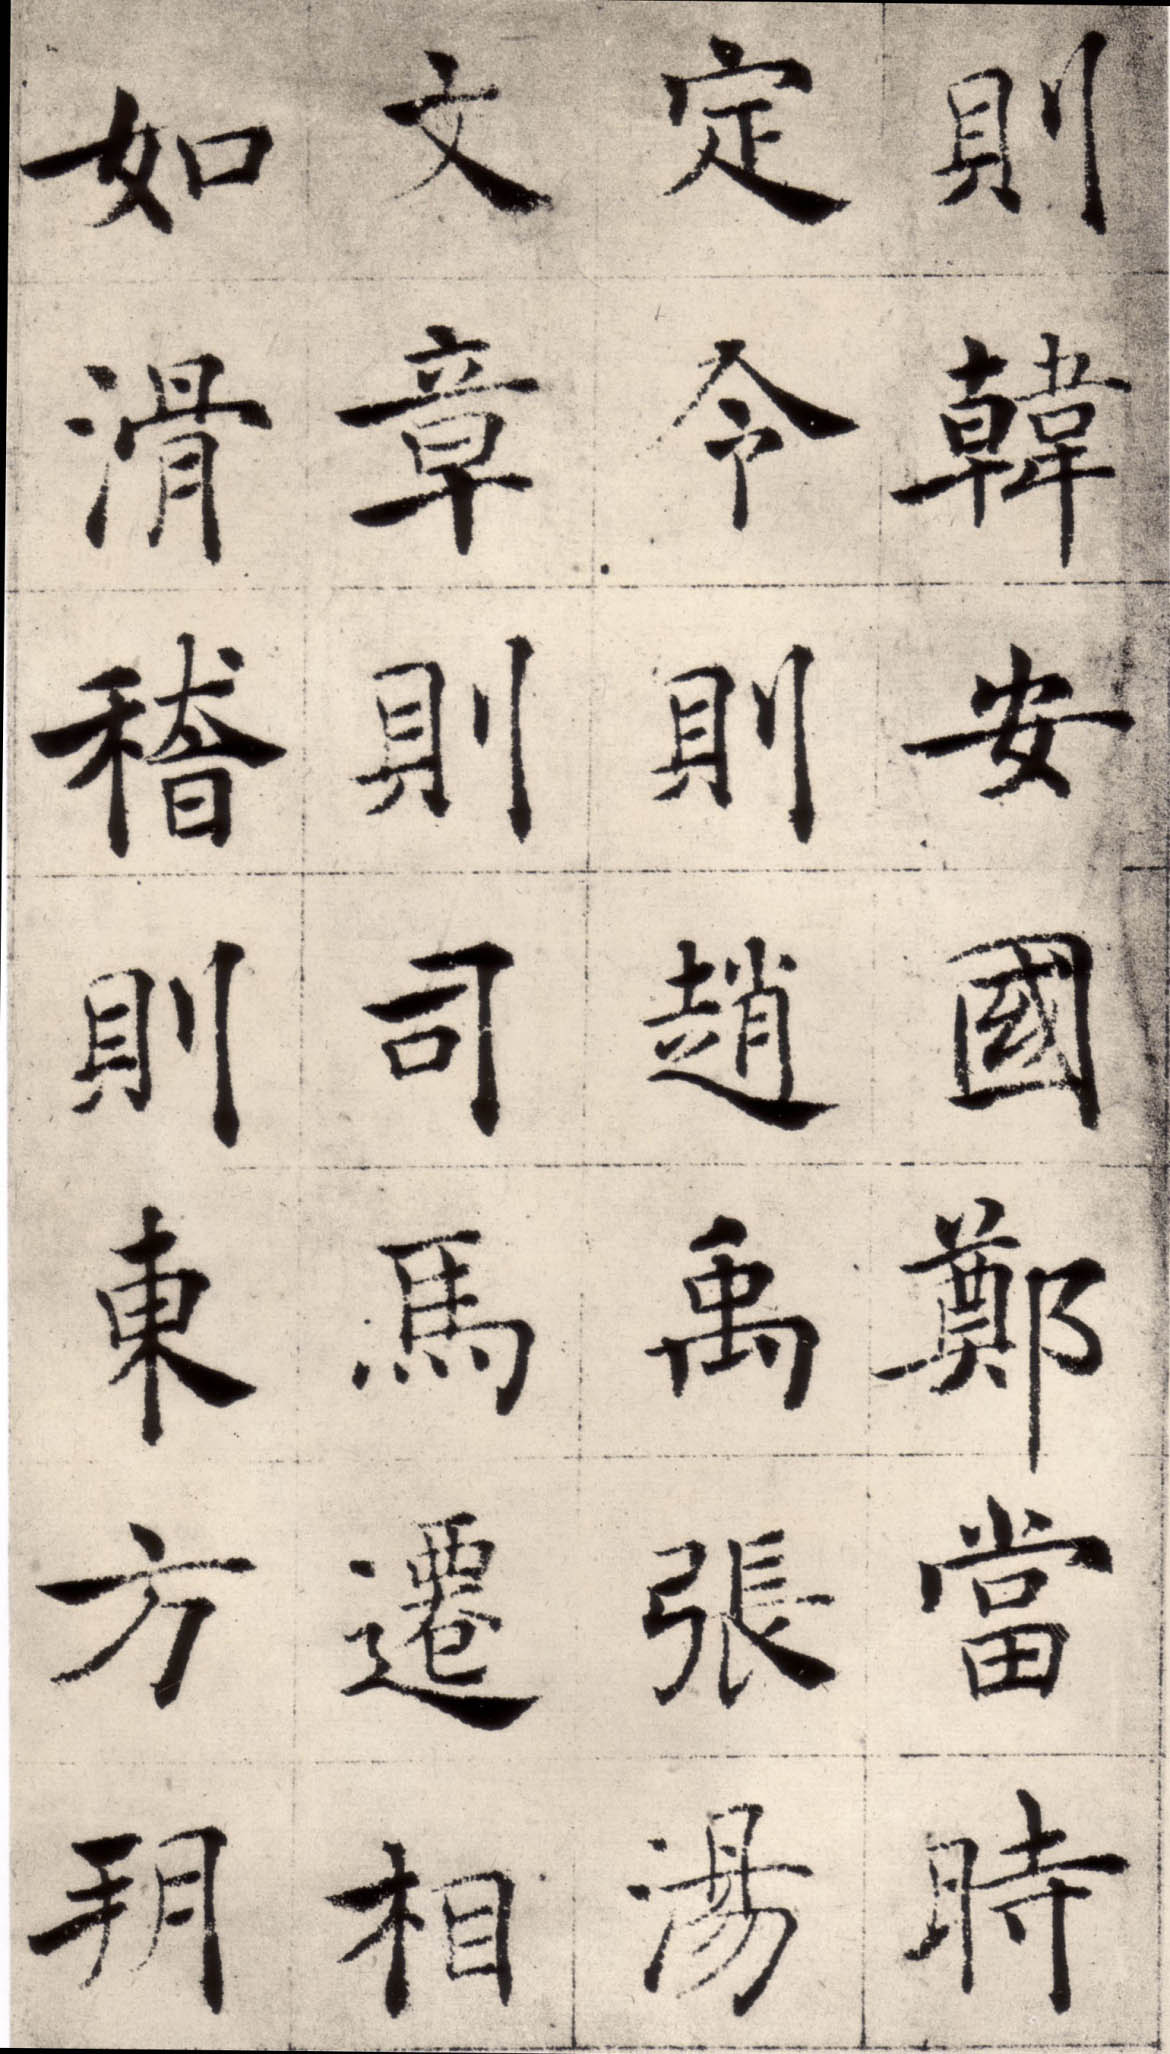 則韓安國鄭當時
定令則趙禹張湯
文章則司馬遷相
如滑稽則東方朔